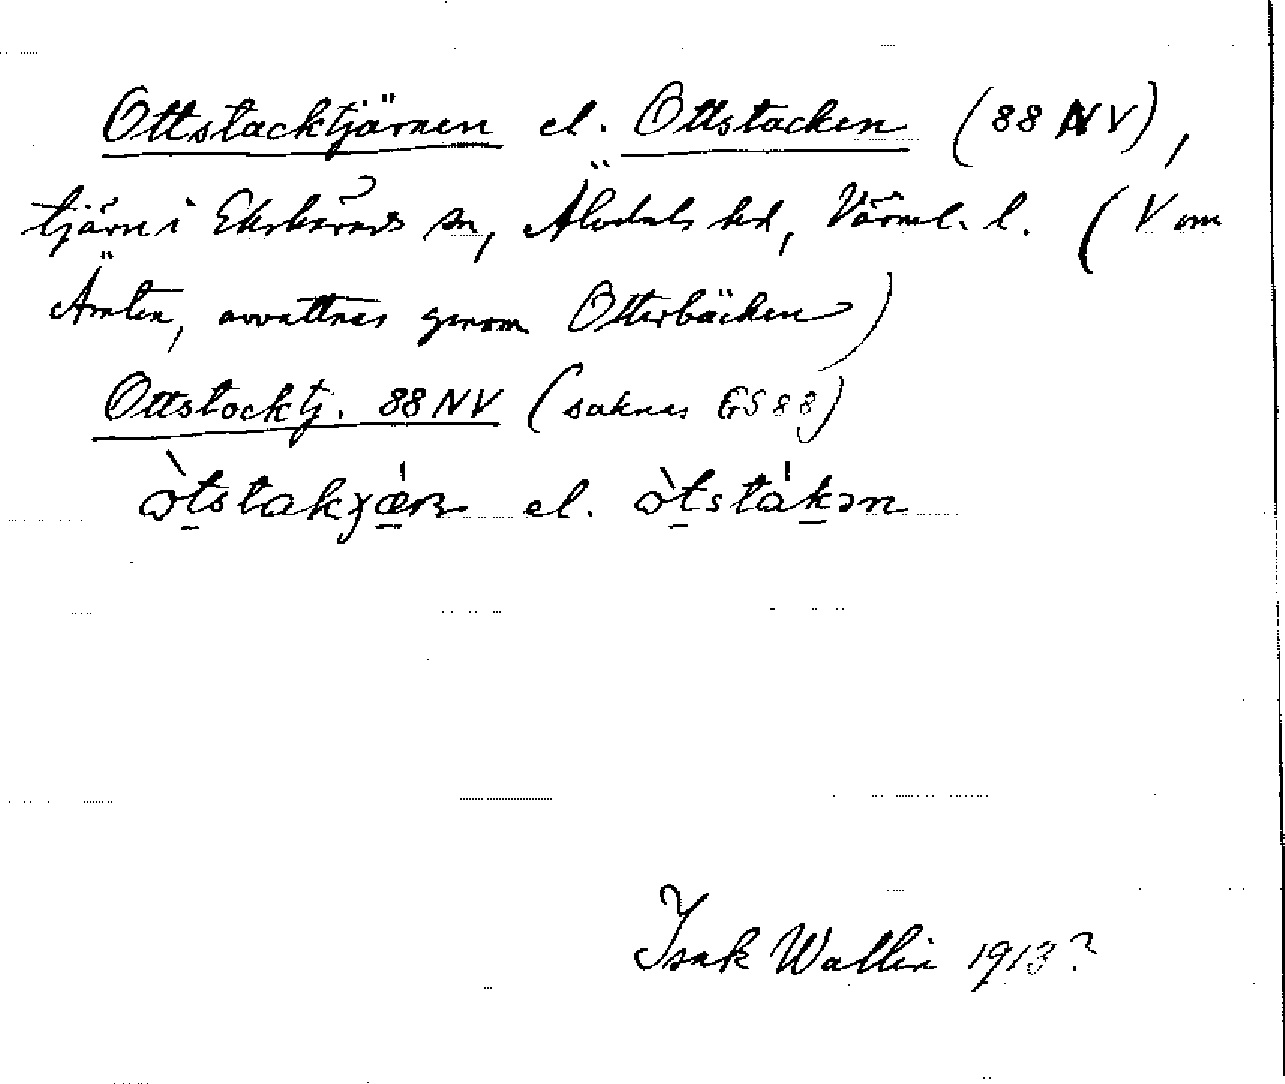 Ottstacktjärnen el. Ottstacken (88 NV),
tjärn i Ekshärads sn, Älvdals hd, Värml. l. (V om
Ämten, avvattnas genom Otterbäcken)
Ottstocktj. 88 NV (saknas GS 88)
òt̠stakχæ̠̍ɳ el. òt̠stȧk̠ən
Isak Wallin 1913?